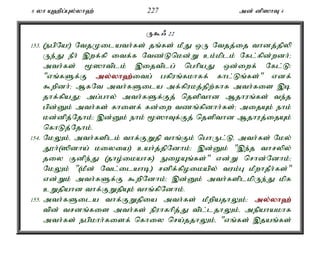 6 லா யுஹிப்புல்லாஹ் 227 அன் னிஸாவு 4
ருகூஃ 22
153. (நபியே) வேதமுடையவர்கள் தங்கள் மீது ஒரு வேதத்தை வானத்திலி
ருந்து நீர் இறக்கி வைக்க வேண்டுமென்று உம்மிடம் கேட்கின்றனர்;
அவர்கள் மூஸாவிடம் இதைவிடப் பெரியது ஒன்றைக் கேட்டு:
"எங்களுக்கு அல்லாஹ்வைப் பகிரங்கமாகக் காட்டுங்கள்" எனக்
கூறினர்; ஆகவே அவர்களுடைய அக்கிரமத்திற்காக அவர்களை இடி
தாக்கியது; அப்பால் அவர்களுக்குத் தெளிவான ஆதாரங்கள் வந்த
பின்னும் அவர்கள் காளைக் கன்றை வணங்கினார்கள்; அதையும் நாம்
மன்னித்தோம்; இன்னும் நாம் மூஸாவுக்குத் தெளிவான ஆதாரத்தையும்
கொடுத்தோம்.
154. மேலும், அவர்களிடம் வாக்குறுதி வாங்கும் பொருட்டு, அவர்கள் மேல்
தூர்(ஸினாய் மலையை) உயர்த்தினோம்; இன்னும் "இந்த வாசலில்
தலை குனிந்து (தாழ்மையாக) நுழையுங்கள்" என்று சொன்னோம்;
மேலும் "(மீன் வேட்டையாடி) சனிக்கிழமையில் வரம்பு மீறாதீர்கள்"
என்றும் அவர்களுக்கு கூறினோம்; இன்னும் அவர்களிடமிருந்து மிக
உறுதியான வாக்குறுதியும் வாங்கினோம்.
155. அவர்களுடைய வாக்குறுதியை அவர்கள் மீறியதாலும்; அல்லாஹ்
வின் வசனங்களை அவர்கள் நிராகரித்து விட்டதாலும், அநியாயமாக
அவர்கள் நபிமார்களைக் கொலை செய்ததாலும், "எங்கள் இதயங்கள்